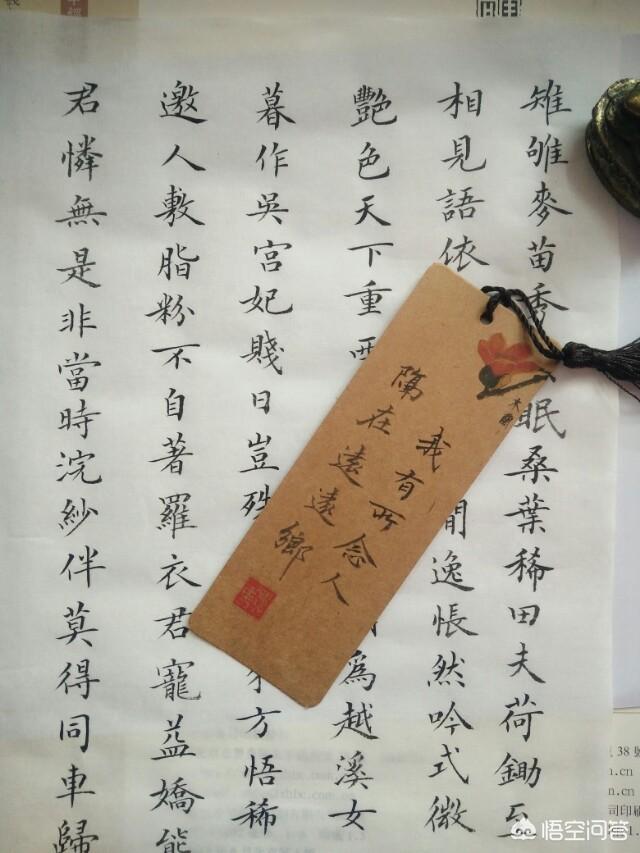 雉雊麥苗秀 眠桑葉稀田夫荷鋤至
相見語依 閒逸悵然吟式微
豔色天下重西 為越溪女
暮作吳宮妃賤日豈殊 方悟稀
邀人敷脂粉不自著羅衣君寵益嬌態
君憐無是非當時浣紗伴莫得同車歸
我有所念人
隔在遠遠鄉
木蘭
38號
n.cn
司印刷
悟空问答